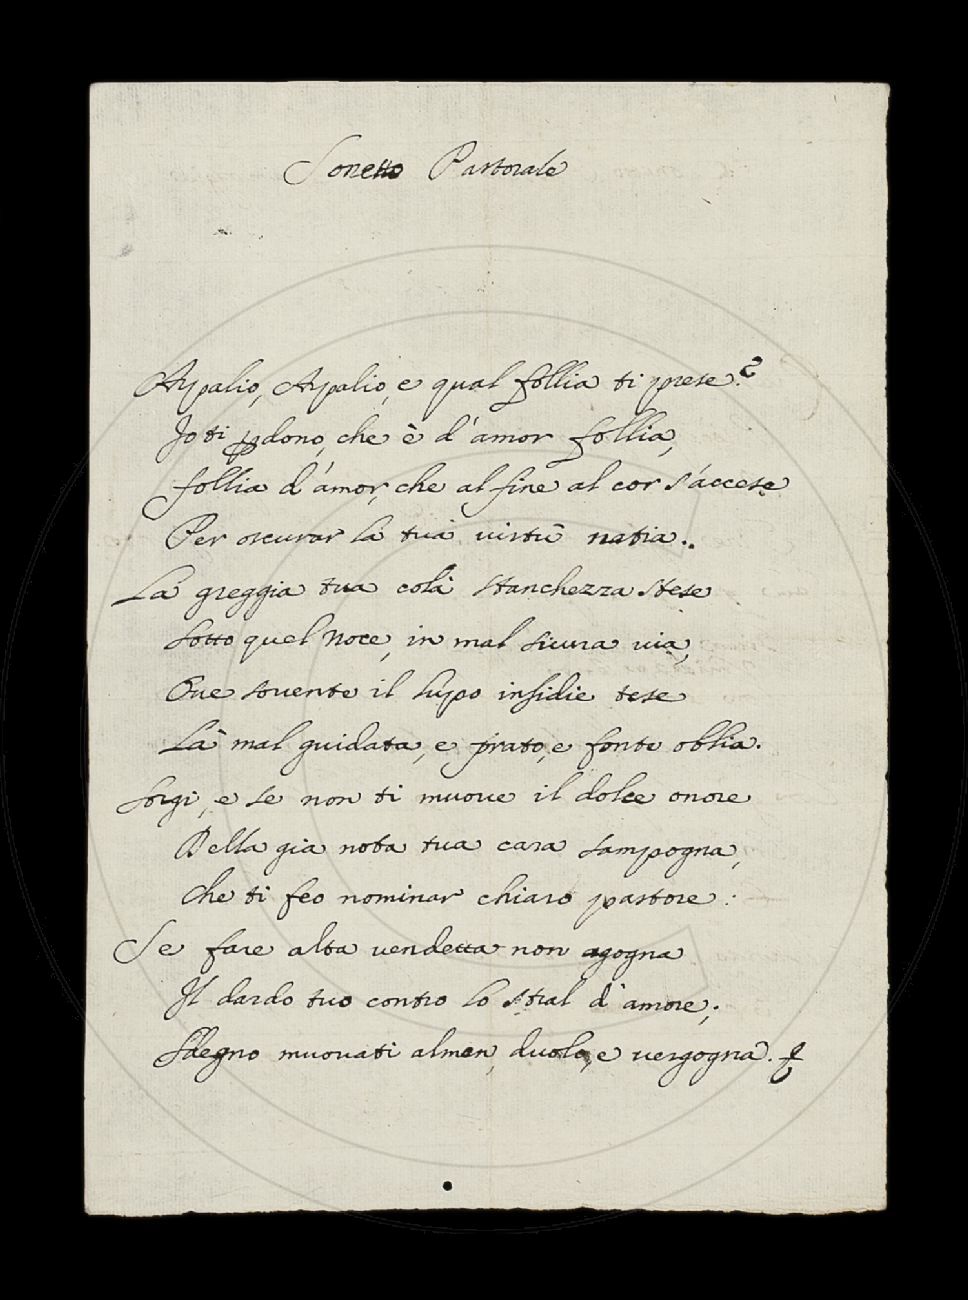 Sonetto Pastorale
Arpalio, Arpalio, e qual follia ti prese?
Io ti pdono, che è d'amor follia,
follia d'amor, che al fine al cor s'accese
Per oscurar la tua virtù natia.
La greggia tua colà stanchezza stese
Sotto quel noce, in mal sicura via,
Ove sovente il lupo insidie tese
Là mal guidata, e prato, e fonte oblia.
Sorgi, e se non ti muove il dolce onore
Della già nota tua cara sampogna,
Che ti feo nominar chiaro pastore:
Se fare alta vendetta non agogna
Il dardo tuo contro lo stral d'amore;
Sdegno muovati almen, duolo, e vergogna.